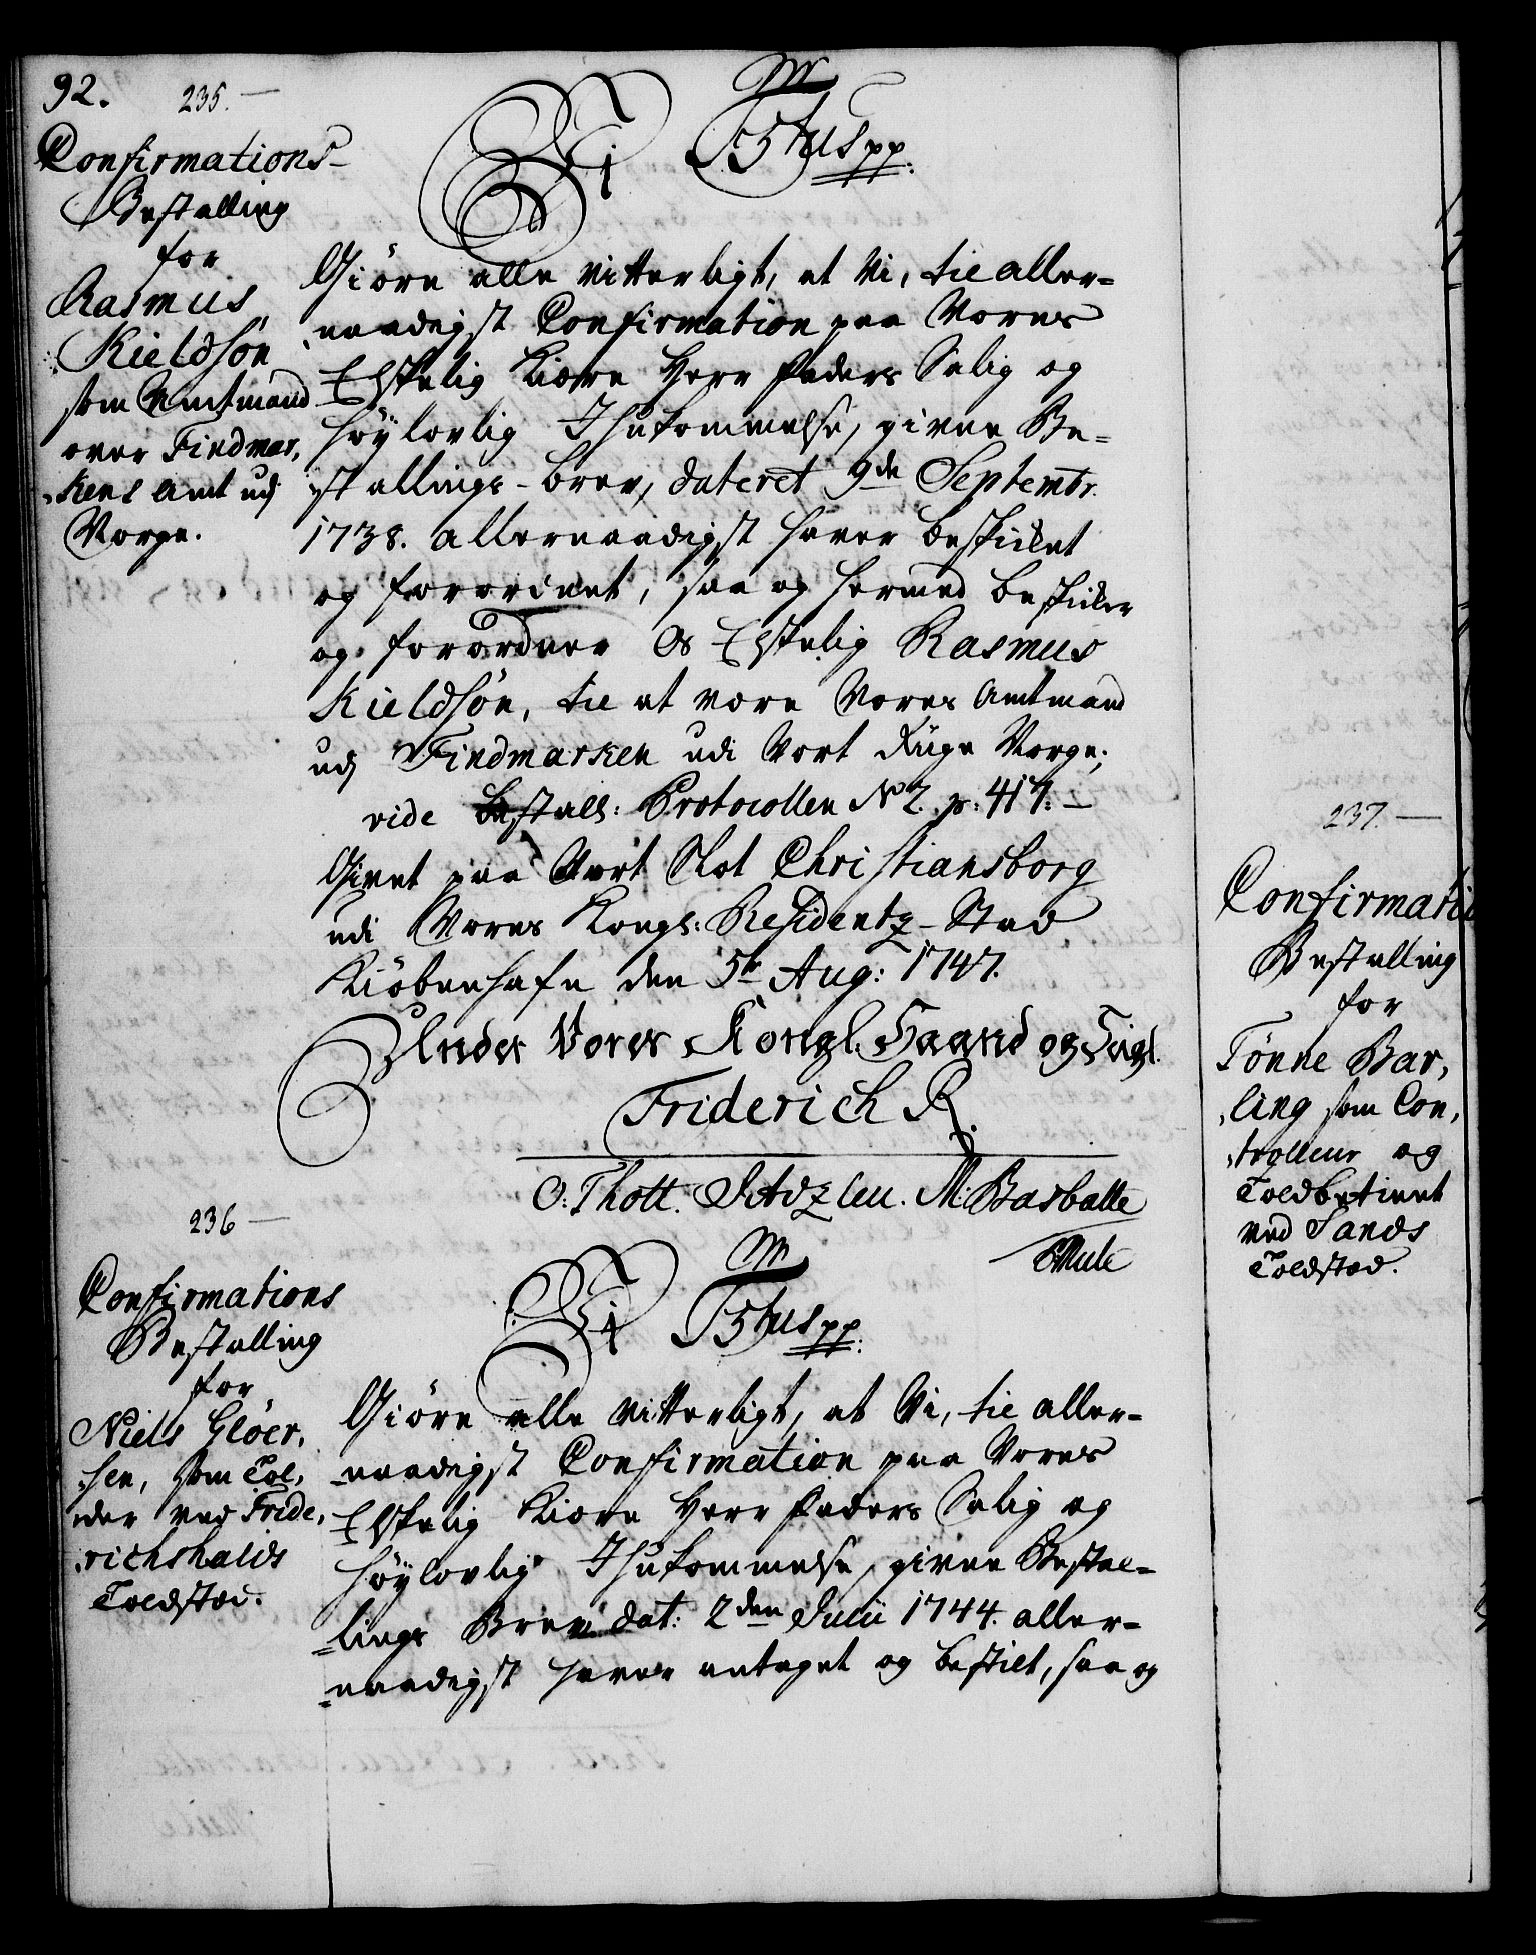 92.
235.
Confirmations-
Bestalling
for
Rasmus
Kieldsøn
som Amtmand
over Findmar,
,kens Amt udj
Norge.
Vi F5tus pp:
Giøre alle vitterligt, at Vi, til aller=
,naadigst Confirmation paa Vores
Elskelig Kiære Herr Faders Salig og
Høylovlig Ihukommelse, given Be=
,stallings-brev, dateret 9de Septembr.
1738. allernaadigst haver beskicket
og forordnet, saa og hermed beskicker
og forordner Os Elskelig Rasmus
Kieldsøn, til at være Vores Amtmand
udj Findmarken udi Vort Rüge Norge;
vide Bestall: Protocollen No 2. p: 417. -
Givet paa Vort Slot Christiansborg
udi Vores Kongl: Residentz-Stad
Kiöbenhafn den 5te Aug: 1747.
Under Vores Kongl. Haand og Seigl.
Friderich R.
O: Thott. M: Basballe
Mule
236
Confirmations
Bestalling
for
Niels Glöer,
,sen, som Tol,
,der ved Fride,
,richshalds
Toldsted.
Vi F5tus pp:
Giøre alle vitterligt, at Vi, til aller-
-naadigst Confirmation paa Vores
Elskelig Kiære Herr Faders Salig og
Høylovlig Ihukommelse, given Bestal-
=lings Brev dat: 2den Julii 1744. aller-
=naadigst haver antaget og bestilt, saa og
237.
Confirmatio
Bestalling
for
Tønne Bar,
,ling som Con,
,trolleur og
Toldbetient
ved Sands
Toldsted.